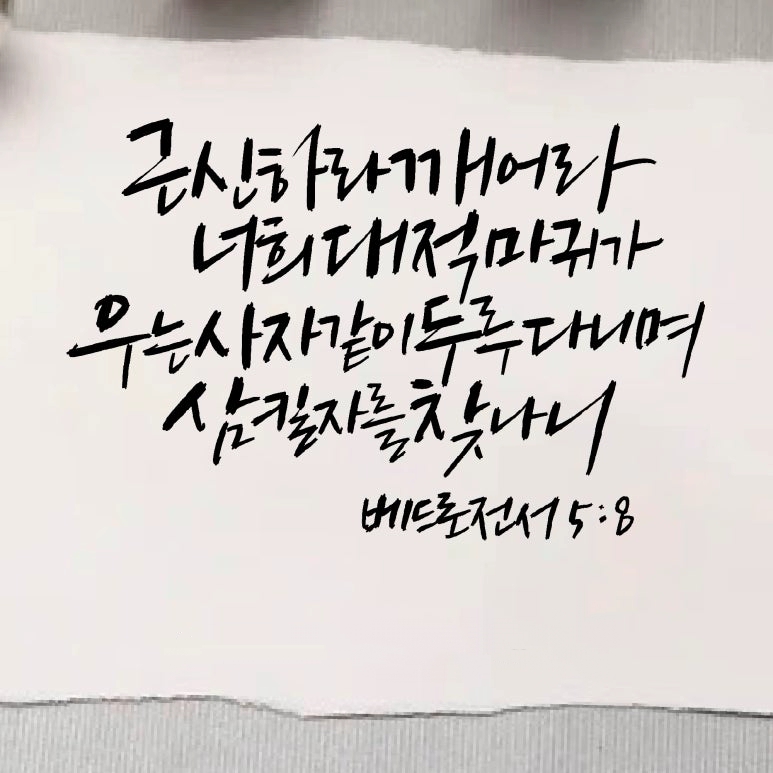 근신하라 깨어라
너희 대적 마귀가
우는 사자 같이 두루 다니며
삼킬 자를 찾나니
베드로전서 5:8